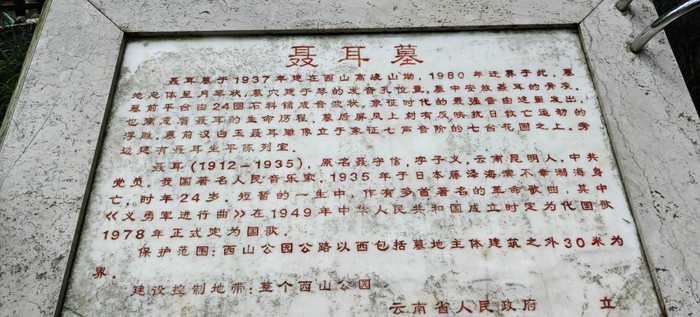 聂耳墓
聂耳墓于1937年建在西山高峣山坳，1980年迁葬于此。墓
地总体呈月琴状，墓穴建于琴的发音孔位置，墓中安放聂耳的骨灰。
墓前平台由24圈石料铺成音波状，象征时代的最强音由这里发出，
也寓意着聂耳的生命历程。墓后屏风上刻有反映抗日救亡运动的
浮雕。墓前汉白玉聂耳雕像立于象征七声音阶的七台花园之上。旁
边建有聂耳生平陈列室。
聂耳（1912—1935），原名聂守信，字子义，云南昆明人，中共
党员，我国著名人民音乐家。1935年于日本藤泽海滨不幸溺海身
亡，时年24岁，短暂的一生中，作有多首著名的革命歌曲，其中
《义勇军进行曲》在1949年中华人民共和国成立时定为代国歌
1978年正式定为国歌。
保护范围：西山公园公路以西包括墓地主体建筑之外30米为
界。
建设控制地带：整个西山公园
云南省人民政府 立